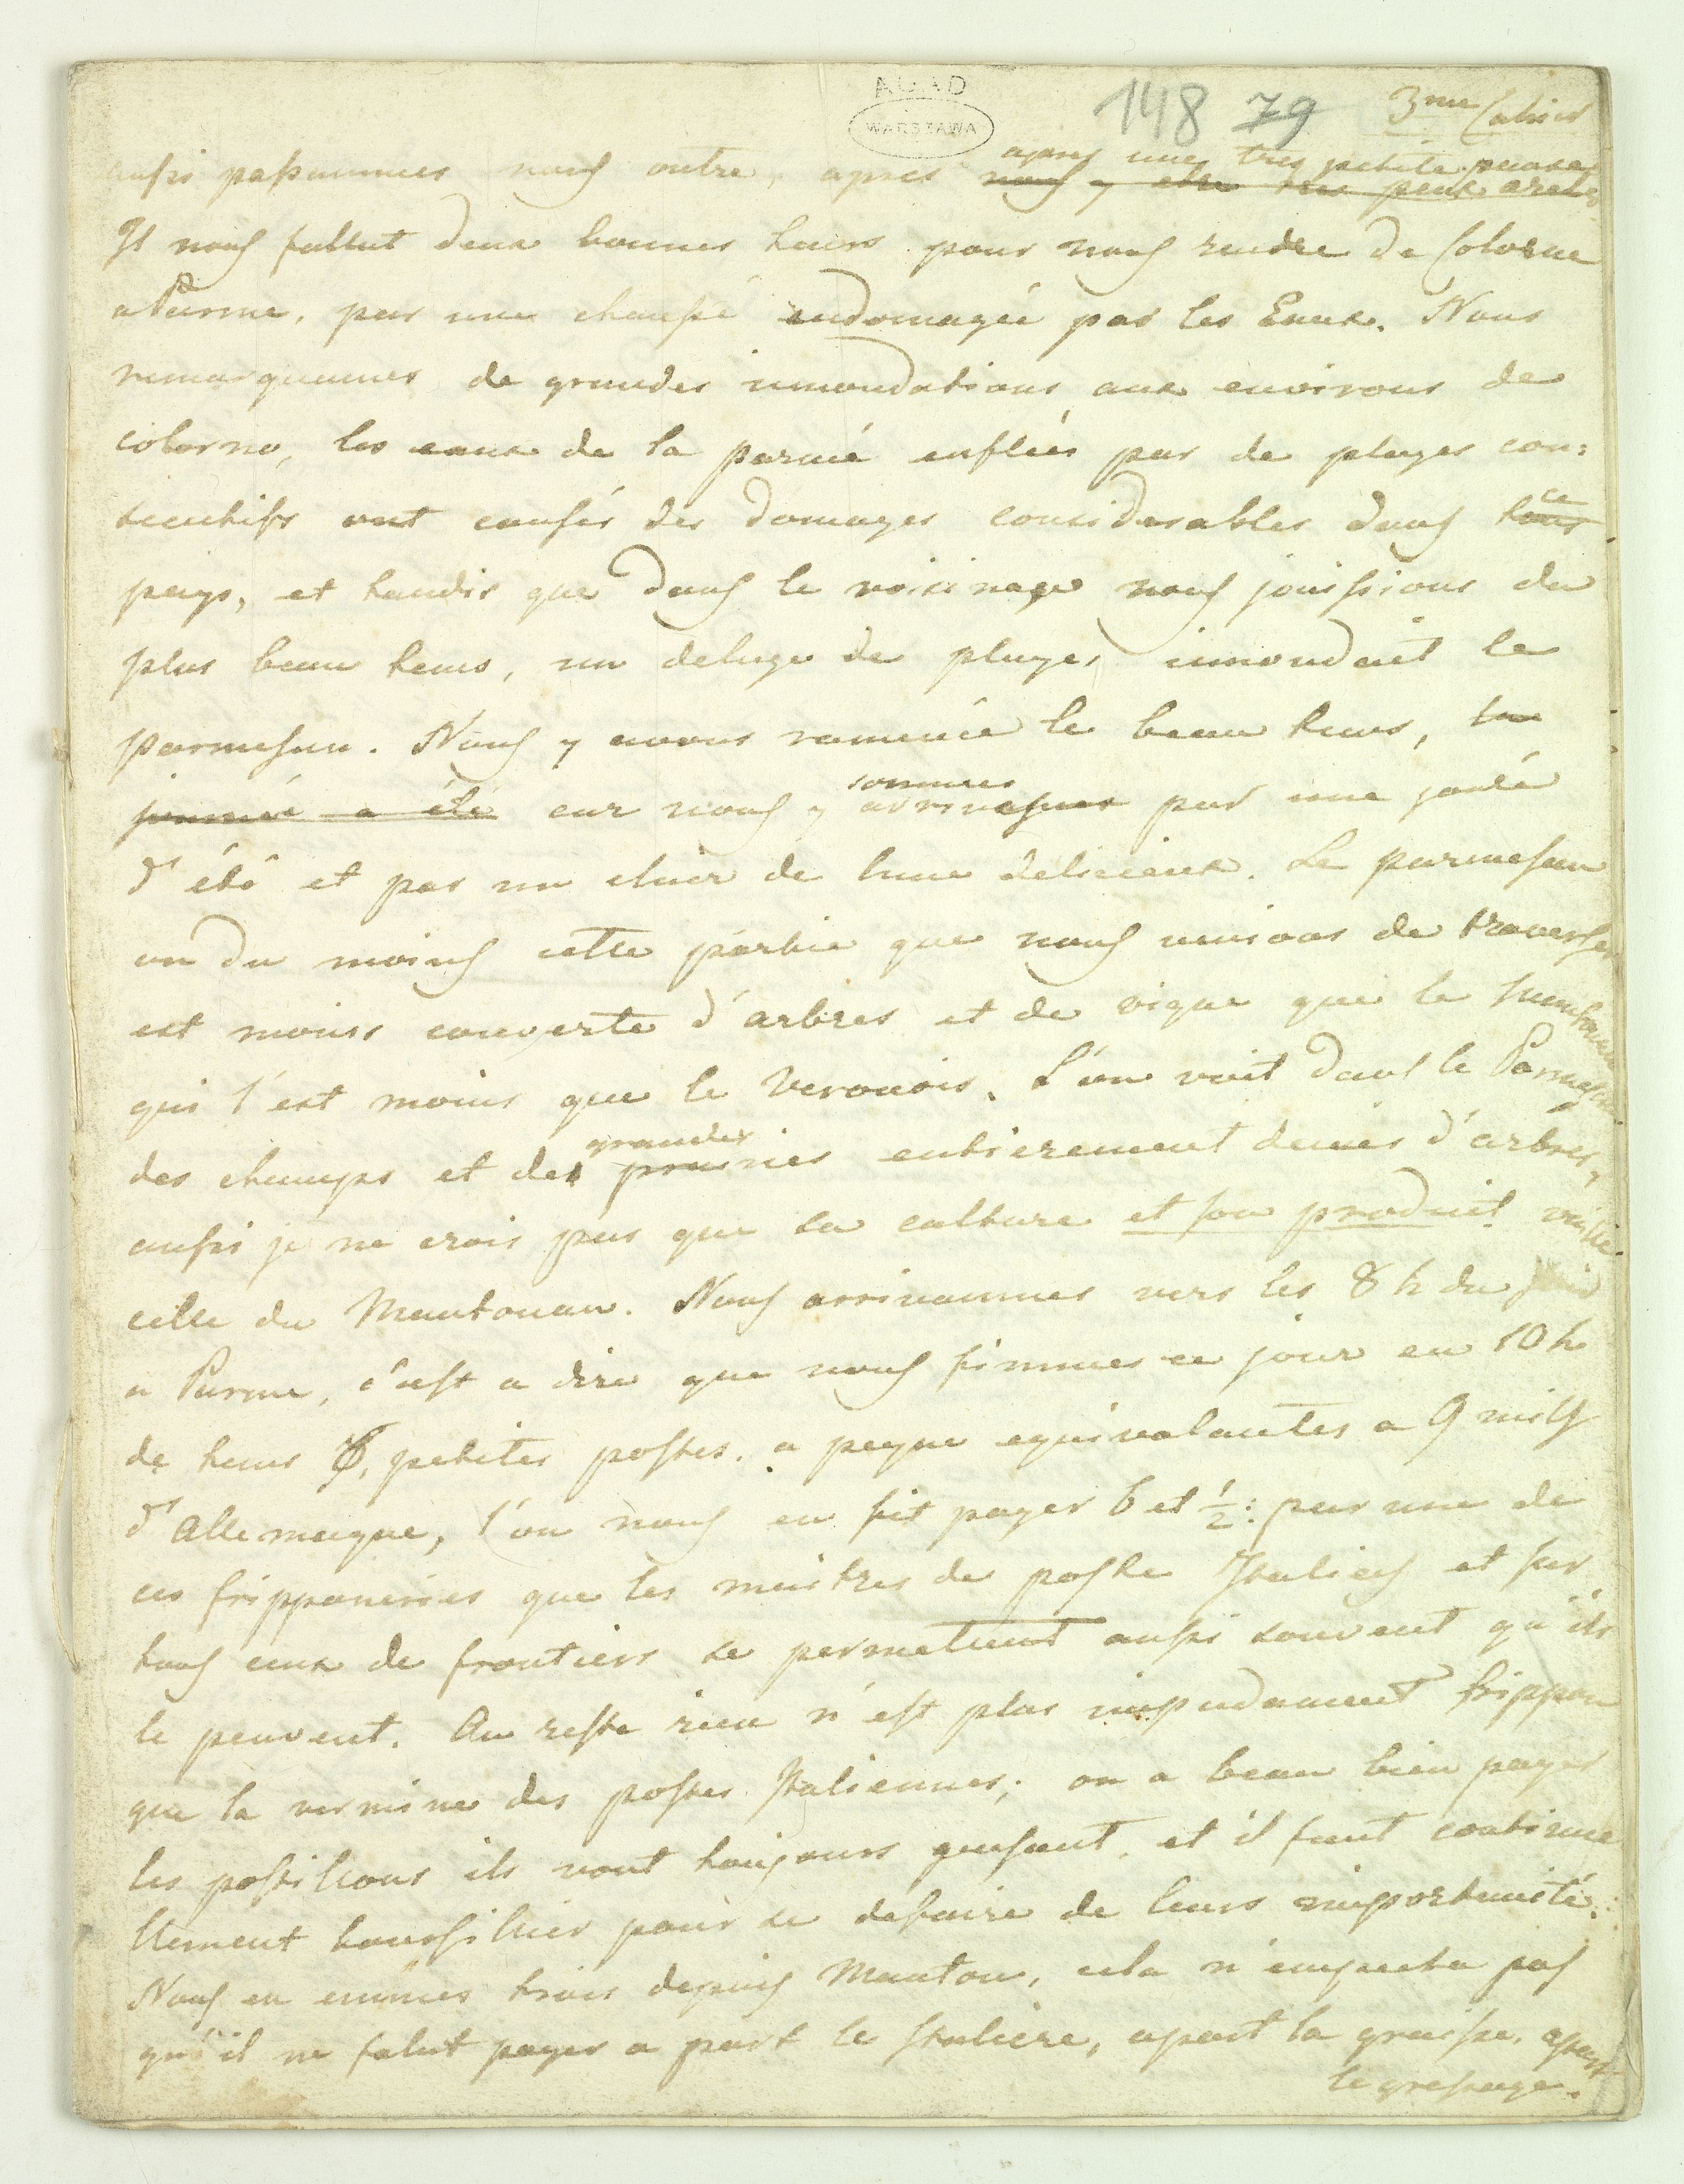 AGAD
WARSZAWA
148 79 3me Cahier
après une tres petite pause
aussi passammes nous outre, apres nous y etre un peux areté
Il nous fallut deux bonnes heurs pour nous rendre de Colorne
a Parme, par une chaussé endomagéé par les Eaux. Nous
remarquames de grandes innondations aux environs de
colorno, les eaux de la parmé enflées par de pluyes con:
secutifs ont causés des domages considerables dans tous ce
pays, et tandis que dans le voisinage nous jouissions du
plus beau tems, un deluge de pluyes innondait le
parmesan. Nous y avons ramenée le beau tems, la
journée a été car nous y arrivasmes sommes par une
d'été et par un clair de lune delicieux. Le parmesan
ou du moins cette partie que nous venions de traverser
est moins couverte d'arbres et de vigne que le Mantouan
qui l'est moins que le Veronois. L'on voit dans le Parmesan
des champs et des grandes prairies entierement denués d'arbres,
aussi je ne crois pas que sa culture et son produit vaille
celle du Mantouan. Nous arrivammes vers les 8 h du soir
a Parme, c'est a dire que nous fimmes ce jour en 10 h
de tems 6, petites postes. a peyne equivalantes a 9 mills
d'Allemagne, l'on nous en fit payer 6 et 1/2: par une de
ces fripponeries que les maitres de poste Italiens et sur
tous ceux de frontiers se permettent aussi souvent qu'ils
le peuvent. Au reste rien n'est plus impudament frippon
que la vermine des postes Italiennes; on a beau bien payer
les postillons ils vont toujours geusant, et il faut continue
llement houssillier pour se defaire de leurs importunité.
Nous en eumes trois depuis Mantou, cela n'empecha pas
qu'il ne falut payer a part le staliere, apart la graisse, apart
le gressage.